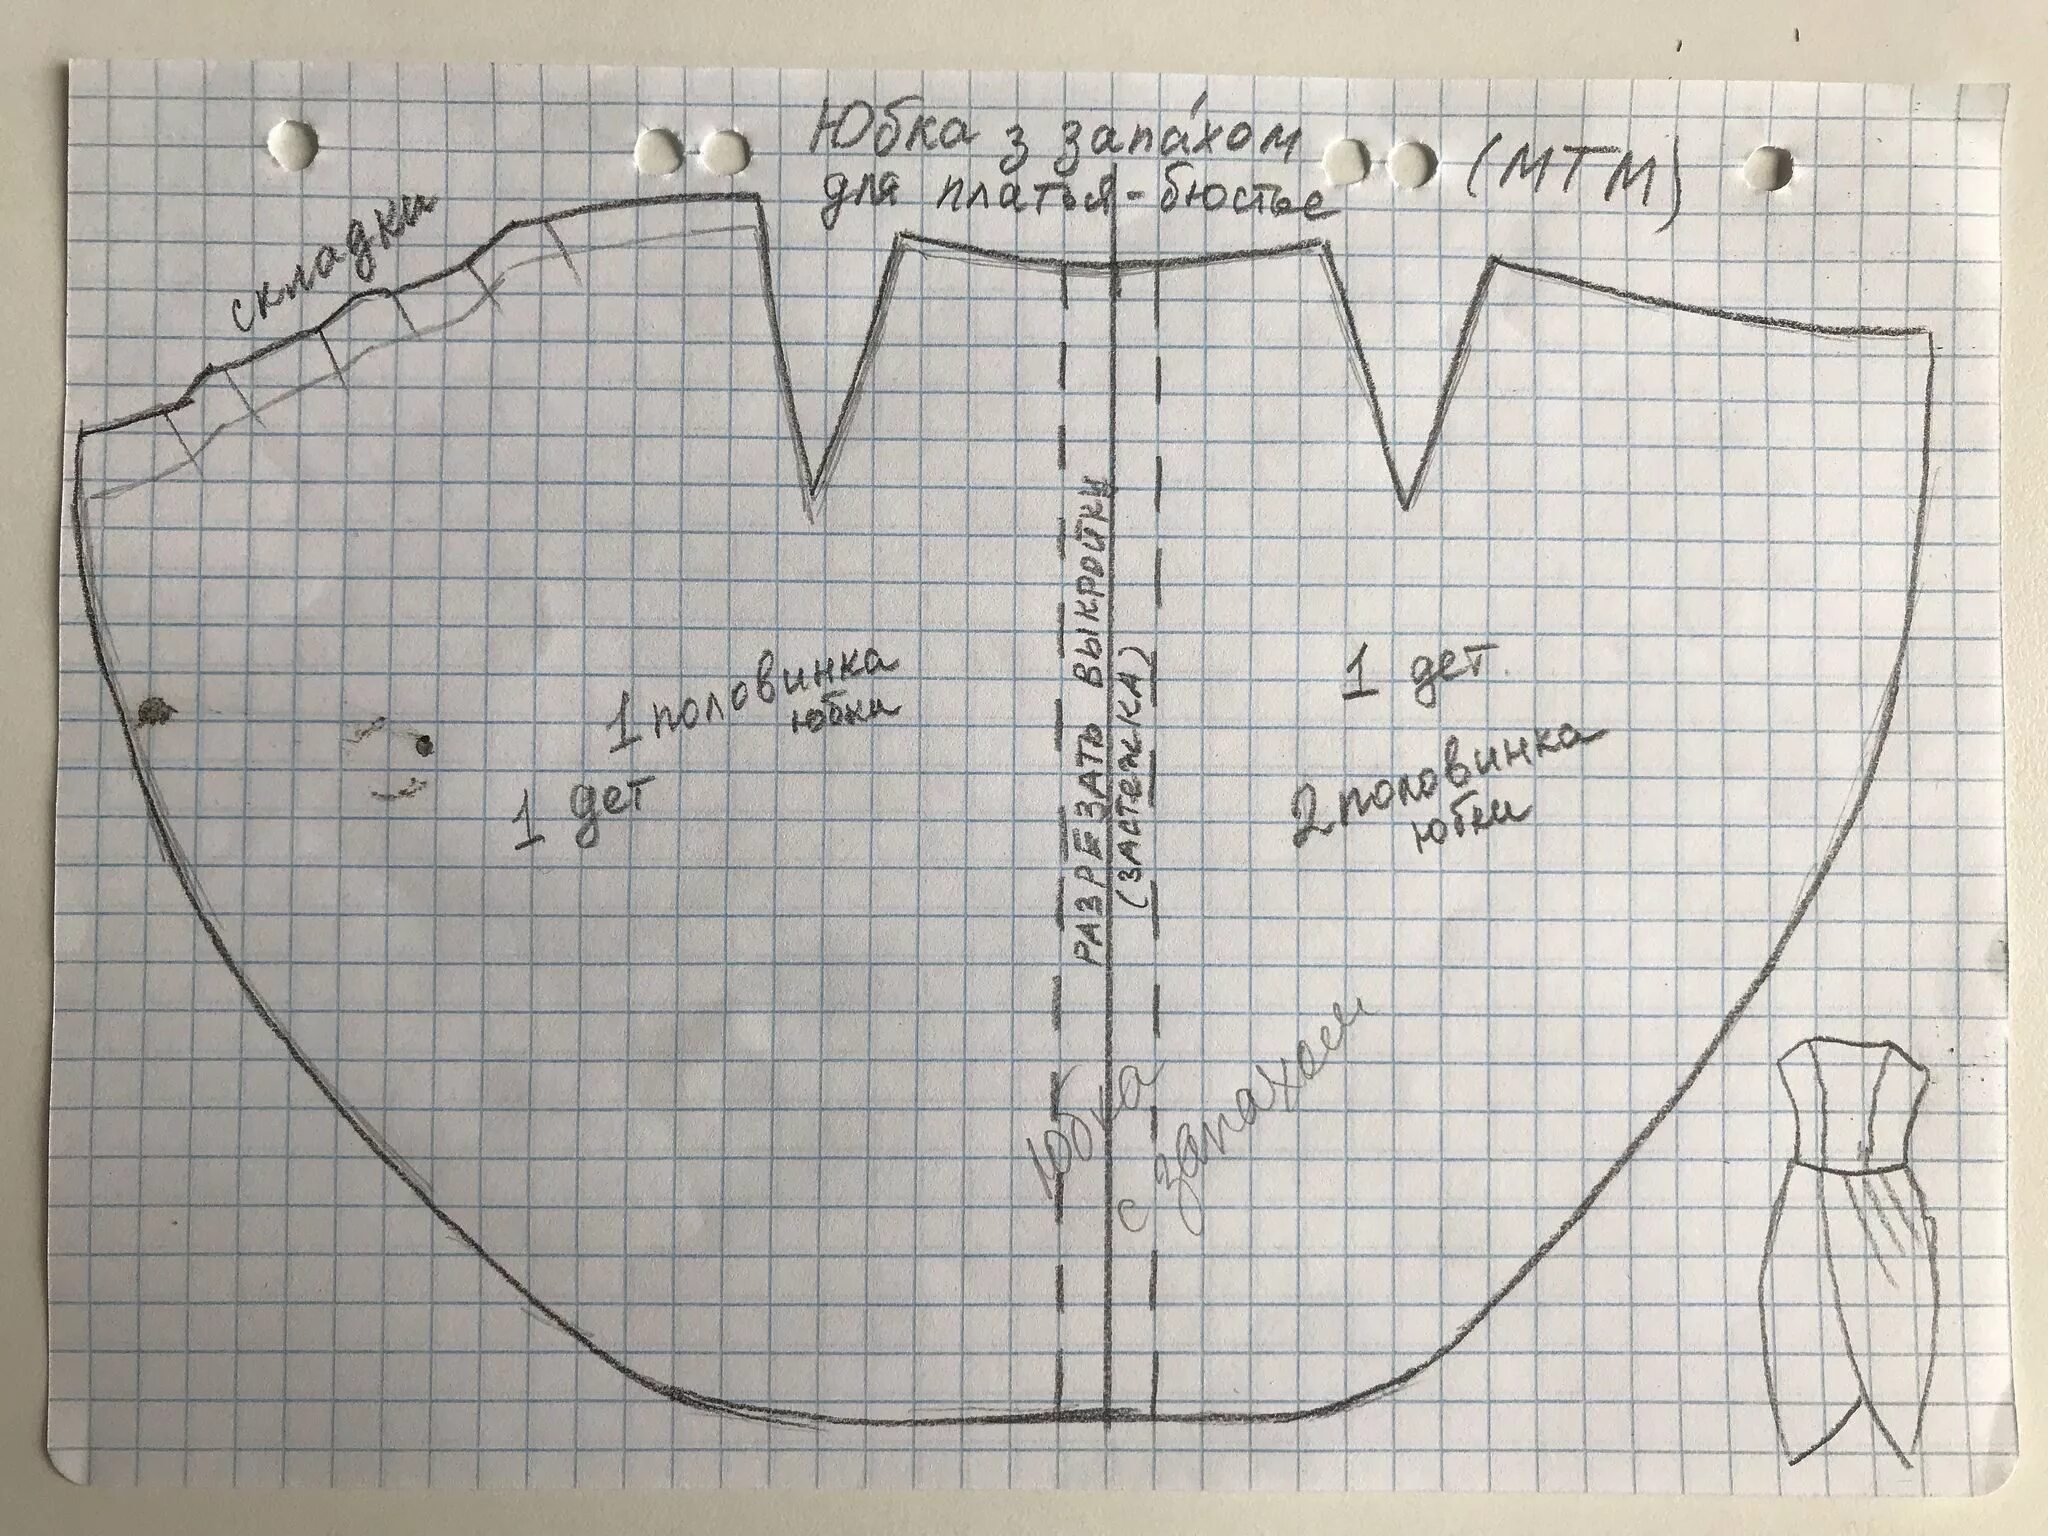 Юбка з запа́хом
для платья-бюстье
(МТМ)
складки
1 половинка
юбки
1 дет
РАЗРЕЗАТЬ ВЫКРОЙКИ
(ЗАСТЕЖКА)
1 дет.
2 половинка
юбки
Юбка
с запахом